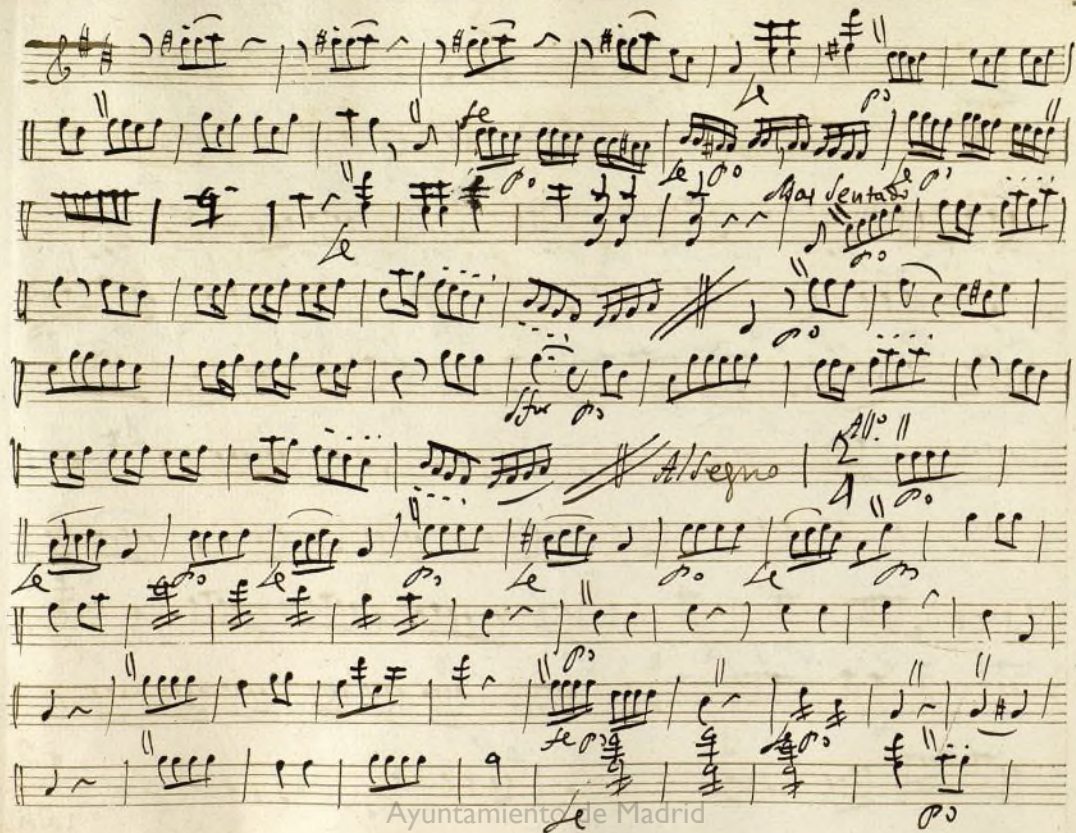 fe po
fe
fe po fe po
Mas Sentado
fe po
po
sfor po
Al Segno 2 4 All.º po
fe po fe po fe po fe po
po
fe po fe po
fe po
Ayuntamiento de Madrid